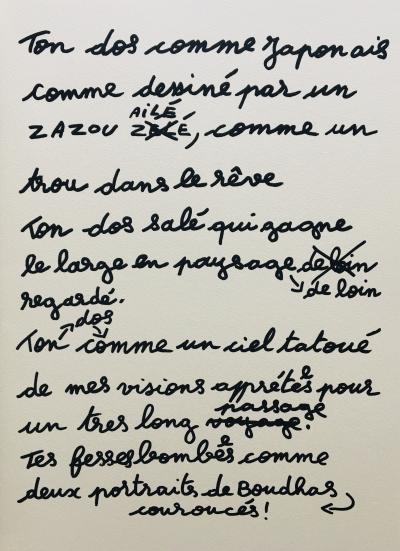 Ton dos comme Japonais
comme dessiné par un
AiLÉ
ZAZOU ZELÉ, comme un
trou dans le rêve
Ton dos salé qui gagne
le large en paysage de loin
de loin
regardé.
dos
Ton comme un ciel tatoué
de mes visions apprétées pour
passage
un tres long voyage.
Tes fesses bombées comme
deux portraits de Boudhas
couroucés!